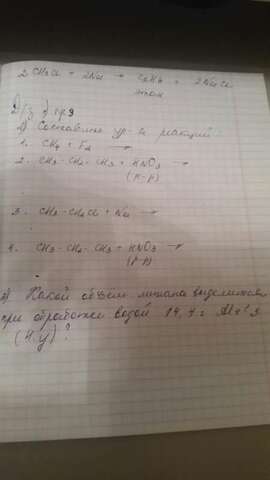 2CH3Cl + 2Na → C2H6 + 2NaCl
этан
Д/з
1) Составление ур-я реакций
1. CH4 + F2 →
2. CH3-CH2-CH3 + HNO3 →
(р-р)
3. CH3-CH2Cl + Na →
4. CH3-CH2-CH3 + HNO3 →
(р-р)
2) Какой объем метана выделится
при обработке водой 14,4 г Al4C3
(н.у)?